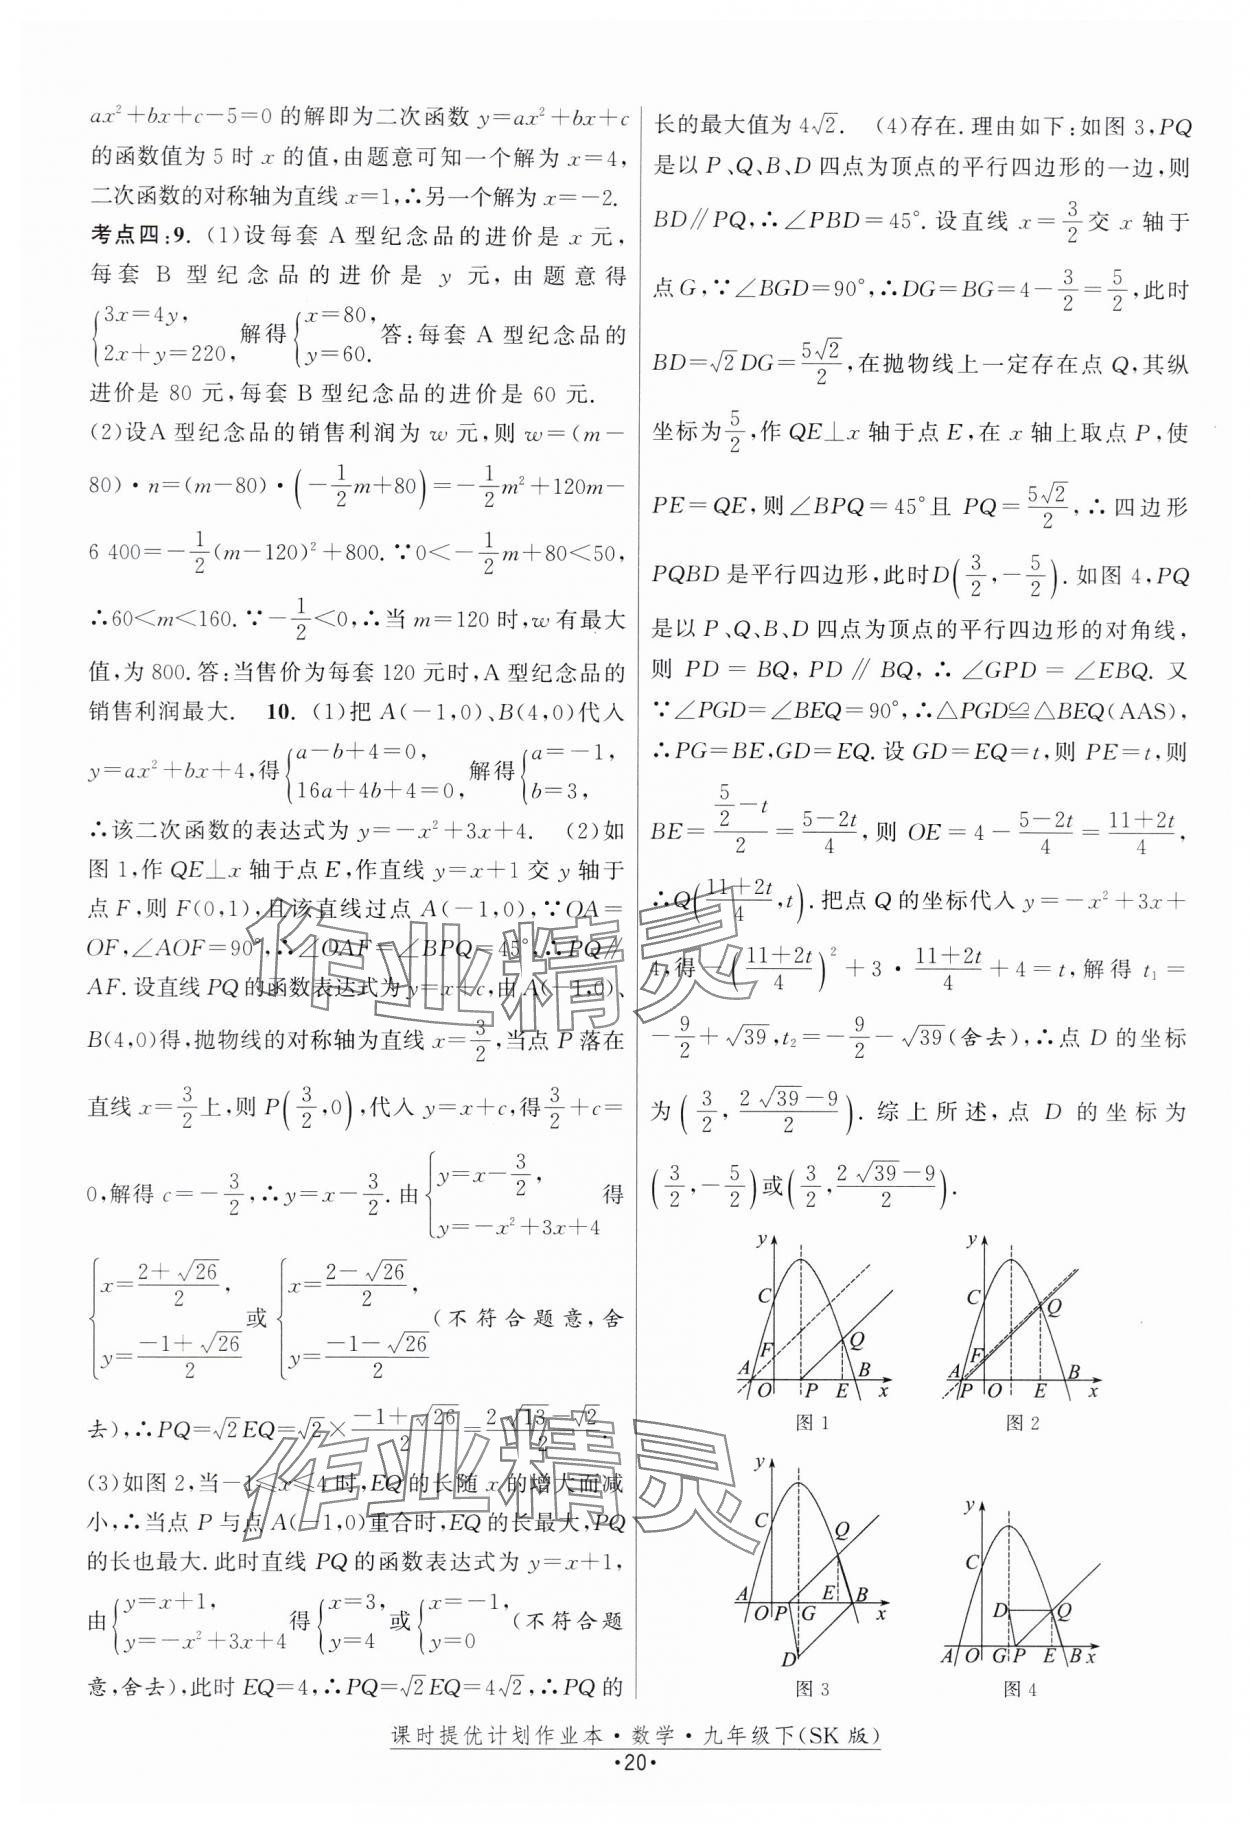 ax²+bx+c-5=0 的解即为二次函数 y=ax²+bx+c
的函数值为 5 时 x 的值,由题意可知一个解为 x=4,
二次函数的对称轴为直线 x=1,∴另一个解为 x=-2.
考点四:9. (1)设每套 A 型纪念品的进价是 x 元,
每套 B 型纪念品的进价是 y 元,由题意得
{3x=4y, 2x+y=220, 解得{x=80, y=60. 答:每套 A 型纪念品的
进价是 80 元,每套 B 型纪念品的进价是 60 元.
(2)设A 型纪念品的销售利润为 w 元,则 w=(m-
80)·n=(m-80)·(-1/2m+80)=-1/2m²+120m-
6 400=-1/2(m-120)²+800.∵0<-1/2m+80<50,
∴60<m<160.∵-1/2<0,∴当 m=120 时,w 有最大
值,为 800.答:当售价为每套 120 元时,A 型纪念品的
销售利润最大. 10. (1)把 A(-1,0)、B(4,0)代入
y=ax²+bx+4,得{a-b+4=0, 16a+4b+4=0, 解得{a=-1, b=3,
∴该二次函数的表达式为 y=-x²+3x+4. (2)如
图 1,作 QE⊥x 轴于点 E,作直线 y=x+1 交 y 轴于
点 F,则 F(0,1),且该直线过点 A(-1,0),∵OA=
OF,∠AOF=90°,∴∠OAF=∠BPQ=45°,∴PQ∥
AF.设直线 PQ 的函数表达式为 y=x+c,由A(-1,0)、
B(4,0)得,抛物线的对称轴为直线 x=3/2,当点 P 落在
直线 x=3/2上,则 P(3/2,0),代入 y=x+c,得3/2+c=
0,解得 c=-3/2,∴y=x-3/2.由{y=x-3/2, y=-x²+3x+4 得
{x=(2+√26)/2, y=(-1+√26)/2 或{x=(2-√26)/2, y=(-1-√26)/2 (不符合题意,舍
去),∴PQ=√2EQ=√2×(-1+√26)/2=(2√13-√2)/2.
(3)如图 2,当-1≤x≤4 时,EQ 的长随 x 的增大而减
小,∴当点 P 与点 A(-1,0)重合时,EQ 的长最大,PQ
的长也最大.此时直线 PQ 的函数表达式为 y=x+1,
由{y=x+1, y=-x²+3x+4 得{x=3, y=4 或{x=-1, y=0 (不符合题
意,舍去),此时 EQ=4,∴PQ=√2EQ=4√2,∴PQ 的
长的最大值为 4√2. (4)存在.理由如下:如图 3,PQ
是以 P、Q、B、D 四点为顶点的平行四边形的一边,则
BD∥PQ,∴∠PBD=45°.设直线 x=3/2交 x 轴于
点 G,∵∠BGD=90°,∴DG=BG=4-3/2=5/2,此时
BD=√2DG=5√2/2,在抛物线上一定存在点 Q,其纵
坐标为5/2,作 QE⊥x 轴于点 E,在 x 轴上取点 P,使
PE=QE,则∠BPQ=45°且 PQ=5√2/2,∴四边形
PQBD 是平行四边形,此时D(3/2,-5/2).如图 4,PQ
是以 P、Q、B、D 四点为顶点的平行四边形的对角线,
则 PD=BQ,PD∥BQ,∴∠GPD=∠EBQ.又
∵∠PGD=∠BEQ=90°,∴△PGD≌△BEQ(AAS),
∴PG=BE,GD=EQ.设 GD=EQ=t,则 PE=t,则
BE=(5/2-t)/2=(5-2t)/4,则 OE=4-(5-2t)/4=(11+2t)/4,
∴Q((11+2t)/4,t).把点 Q 的坐标代入 y=-x²+3x+
4,得-((11+2t)/4)²+3·(11+2t)/4+4=t,解得 t₁=
-9/2+√39,t₂=-9/2-√39(舍去),∴点 D 的坐标
为(3/2,(2√39-9)/2).综上所述,点 D 的坐标为
(3/2,-5/2)或(3/2,(2√39-9)/2).
y C F A O P E B x Q
图 1
y C F A P O E B x Q
图 2
y C Q A O P G E B x D
图 3
y C D Q A O G P E B x
图 4
作业精灵
作业精灵
课时提优计划作业本·数学·九年级下(SK 版)
·20·